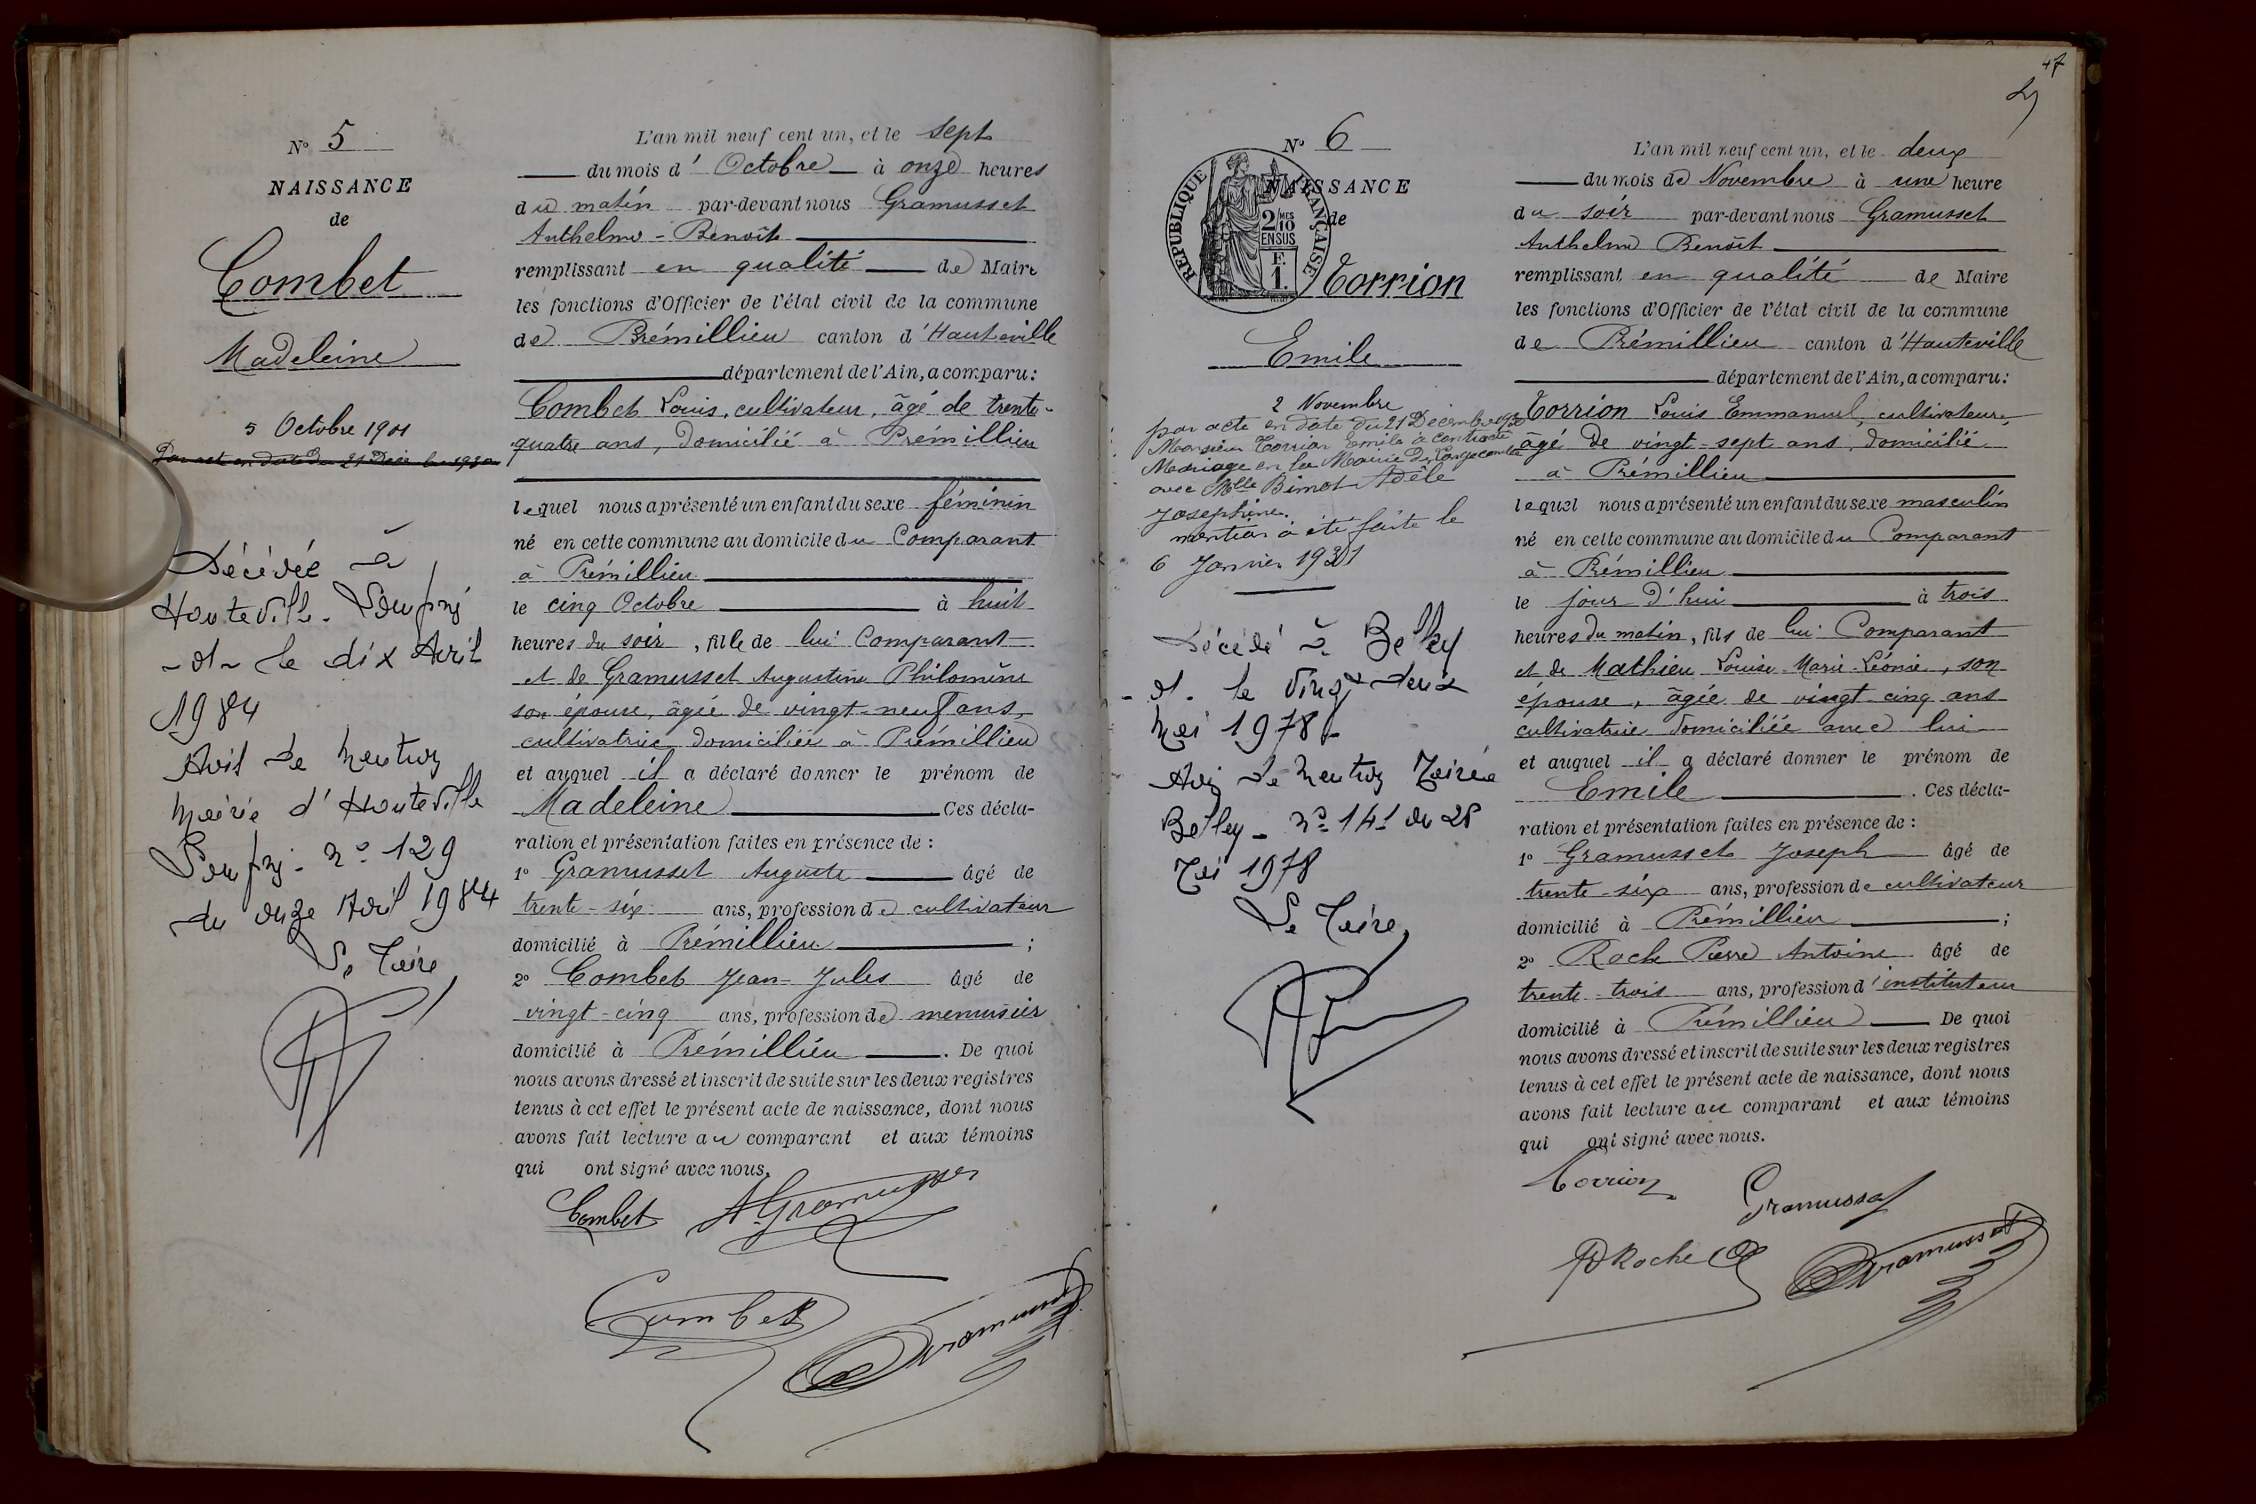 N° 5
NAISSANCE
de
Combet
Madeleine
5 Octobre 1901
Par acte en date du 21 Décembre 1930
Décédée à
Hauteville-Lompnes
le dix Avril
1984
Avis de mention
Mairie d'Hauteville
Lompnes n° 129
du onze Avril 1984
Le Maire
L'an mil neuf cent un, et le sept
du mois d'Octobre à onze heures
du matin par-devant nous Gramusset
Anthelme-Benoît
remplissant en qualité de Maire
les fonctions d'Officier de l'état civil de la commune
de Prémillieu canton d'Hauteville
département de l'Ain, a comparu:
Combet Louis, cultivateur, âgé de trente-
quatre ans, domicilié à Prémillieu
lequel nous a présenté un enfant du sexe féminin
né en cette commune au domicile du Comparant
à Prémillieu
le cinq Octobre à huit
heures du soir, fille de lui Comparant
et de Gramusset Augustine Philomène
son épouse, âgée de vingt-neuf ans,
cultivatrice domiciliée à Prémillieu
et auquel il a déclaré donner le prénom de
Madeleine Ces décla-
ration et présentation faites en présence de :
1° Gramusset Auguste âgé de
trente-six ans, profession de cultivateur
domicilié à Prémillieu ;
2° Combet Jean-Jules âgé de
vingt-cinq ans, profession de menuisier
domicilié à Prémillieu . De quoi
nous avons dressé et inscrit de suite sur les deux registres
tenus à cet effet le présent acte de naissance, dont nous
avons fait lecture au comparant et aux témoins
qui ont signé avec nous.
Combet A. Gramusset
Combet Gramusset
47
N° 6
NAISSANCE
de
REPUBLIQUE FRANÇAISE
2/10 MES
EN SUS
F.
1.
Torrion
Emile
2 Novembre
par acte en date du 21 Décembre 1930
Monsieur Torrion Emile à contracté
Mariage en la Mairie de Longecombe
avec Melle Binot Adèle
Josephine.
mention a été faite le
6 Janvier 1931
Décédé à Belley
le vingt deux
Mai 1978
Avis de mention Mairie
Belley n° 141 du 25
Mai 1978
Le Maire
L'an mil neuf cent un, et le deux
du mois de Novembre à une heure
du soir par-devant nous Gramusset
Anthelme Benoît
remplissant en qualité de Maire
les fonctions d'Officier de l'état civil de la commune
de Prémillieu canton d'Hauteville
département de l'Ain, a comparu:
Torrion Louis Emmanuel, cultivateur,
âgé de vingt-sept ans, domicilié
à Prémillieu
lequel nous a présenté un enfant du sexe masculin
né en cette commune au domicile du Comparant
à Prémillieu
le jour d'hui à trois
heures du matin, fils de lui Comparant
et de Mathieu Louise Marie-Léonie, son
épouse, âgée de vingt-cinq ans
cultivatrice domiciliée avec lui
et auquel il a déclaré donner le prénom de
Emile . Ces décla-
ration et présentation faites en présence de :
1° Gramusset Joseph âgé de
trente-six ans, profession de cultivateur
domicilié à Prémillieu ;
2° Roche Pierre Antoine âgé de
trente-trois ans, profession d'instituteur
domicilié à Prémillieu De quoi
nous avons dressé et inscrit de suite sur les deux registres
tenus à cet effet le présent acte de naissance, dont nous
avons fait lecture au comparant et aux témoins
qui ont signé avec nous.
Torrion Gramusset
Roche Gramusset